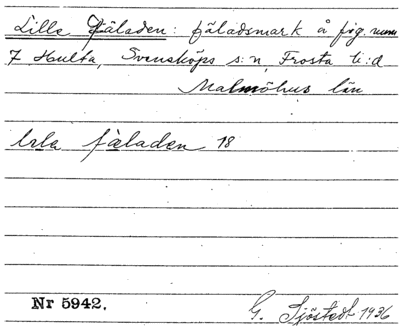 Lille Fäladen: fäladsmark å fig. num
7 Hulta, Svensköps s:n, Frosta ti:d
Malmöhus län
fäladen 18
Nr 5942.
G. Sjöstedt 1936